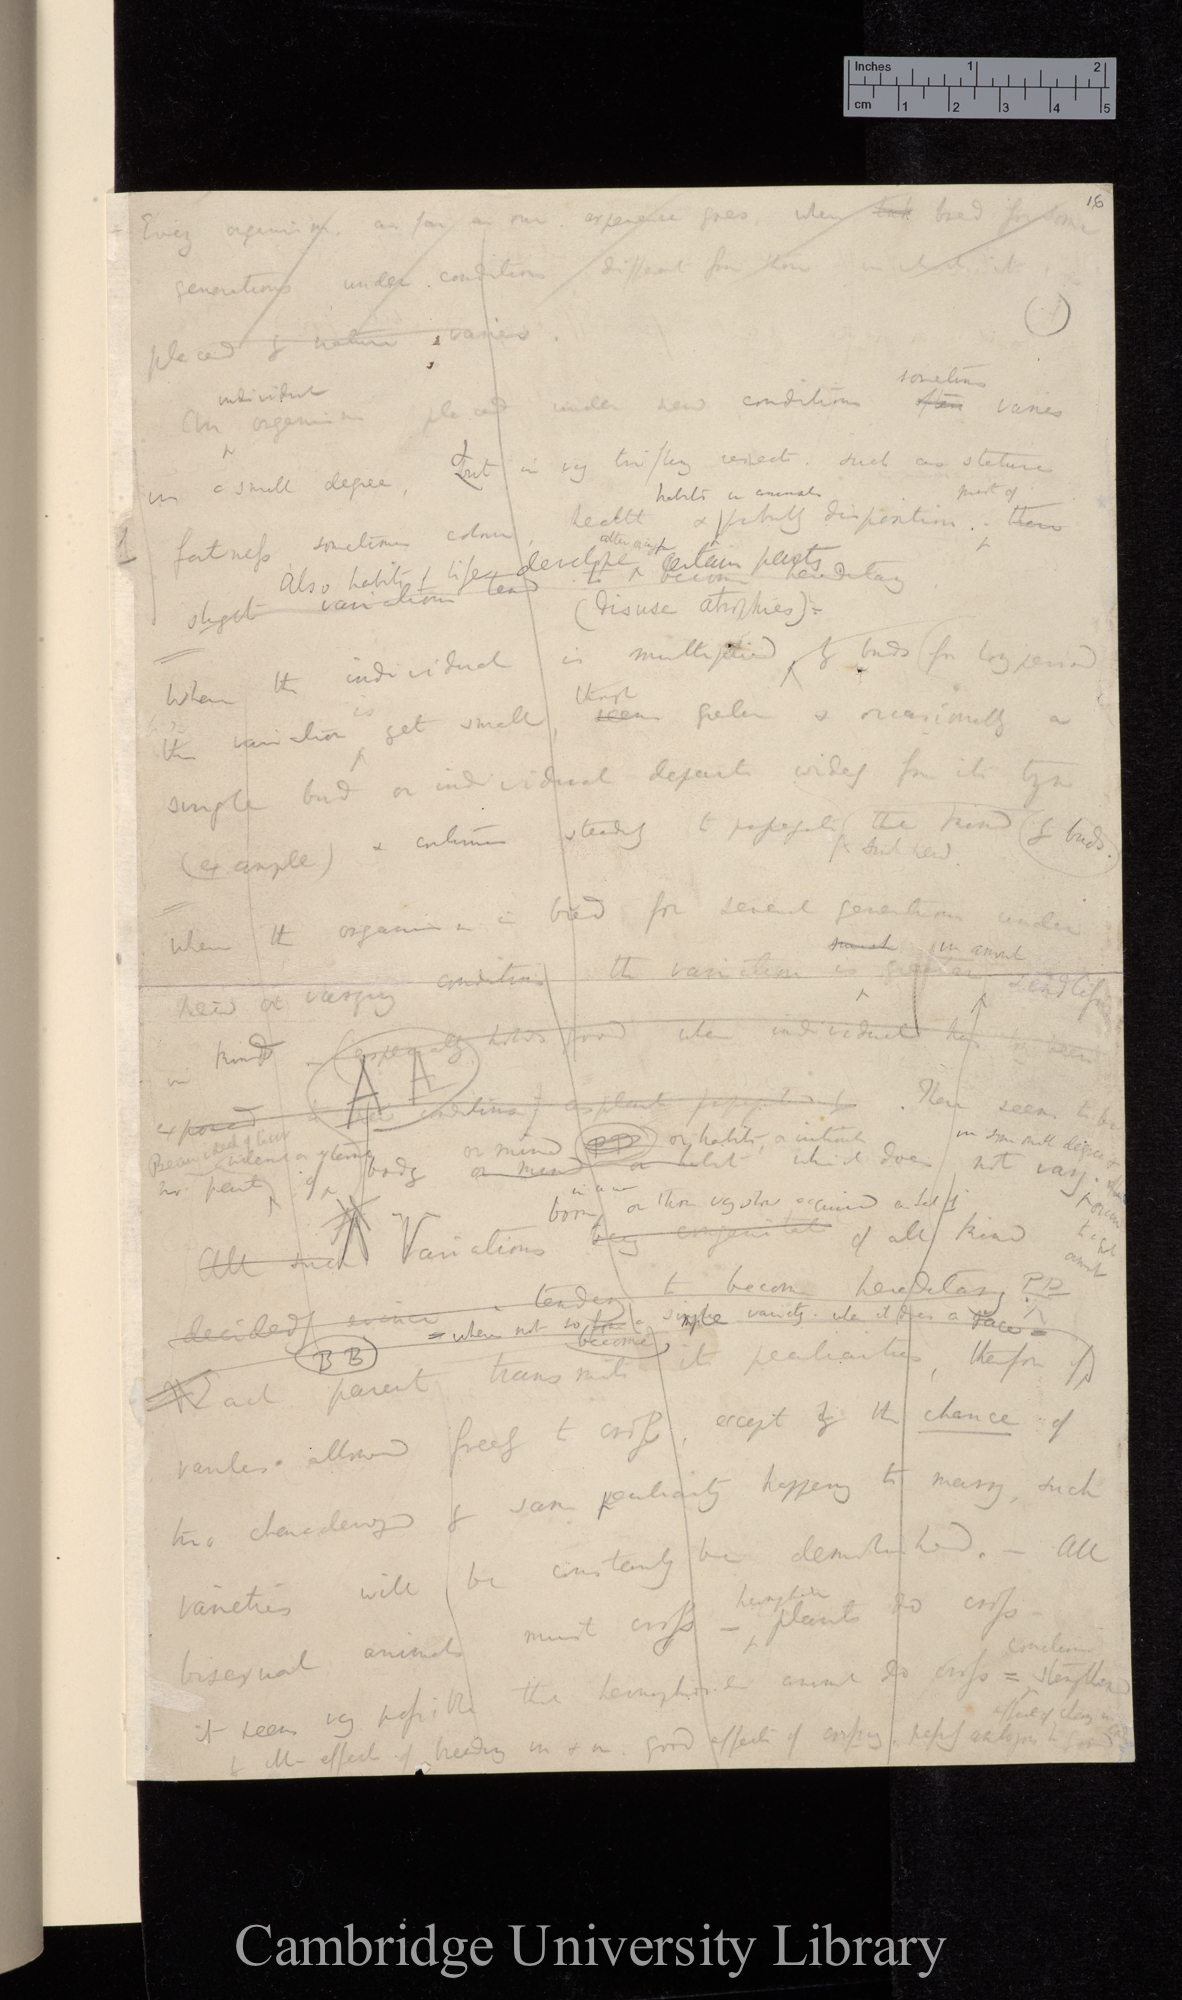 Inches 1 2
cm 1 2 3 4 5
16
Every organism, as far as our experience goes, when bred for some
generations under conditions different from those in which it
placed by nature varies.
(1)
individual sometimes
An organism placed under new conditions often varies
in a small degree, & but in very trifling respects such as stature
habits in animals most of
1 fatness sometimes colour, health & probably disposition. These
after
Also habits of life develope certain parts
slight variations tend to become hereditary
(Disuse atrophies)=
When the individual is multiplied by buds for long period
is though
the variation yet small, seems greater & occasionally a
single bud or individual departs widely from its type
(example) & continues steadily to propagate the kind by buds.
such new
When the organism is bred for several generations under
such in amount
new or varying conditions the variation is greater, & endless
in kind (especially holds good when individual has been
exposed to new conditions) as plants propagated
AA
There seems to be
Because
no part of body or mind PP or habits, or instincts in some small degree
or mind or habit which does not vary.
born or those very slow acquired
All such Variations being congenital of all kind
decidedly evince tendency to become hereditary PP
= when not so become a simple variety. when it does a race =
BB
Each parent transmits its peculiarities, therefore if
varieties allowed freely to cross, except by the chance of
two characterized by same peculiarity happening to marry, such
varieties will be constantly be demolished. — All
hermaphrodite
bisexual animals must cross — plants do cross —
it seems very possible the hermaphrodite animal do cross = strengthened
to ill effects of breeding in & in. good effects of crossing
Cambridge University Library